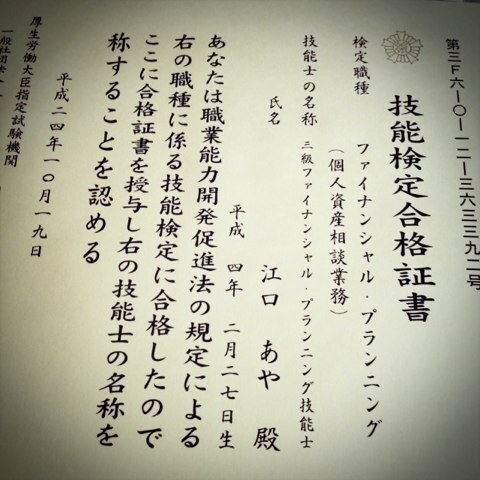 第三F六ー〇ー一二ー三六三三九二号
技能検定合格証書
検定職種 ファイナンシャル・プランニング
(個人資産相談業務)
技能士の名称 三級ファイナンシャル・プランニング技能士
氏名 江口 あや 殿
平成 四年 二月二七日生
あなたは職業能力開発促進法の規定による
右の職種に係る技能検定に合格したので
ここに合格証書を授与し右の技能士の名称を
称することを認める
平成二四年一〇月一九日
厚生労働大臣指定試験機関
一般社団法人